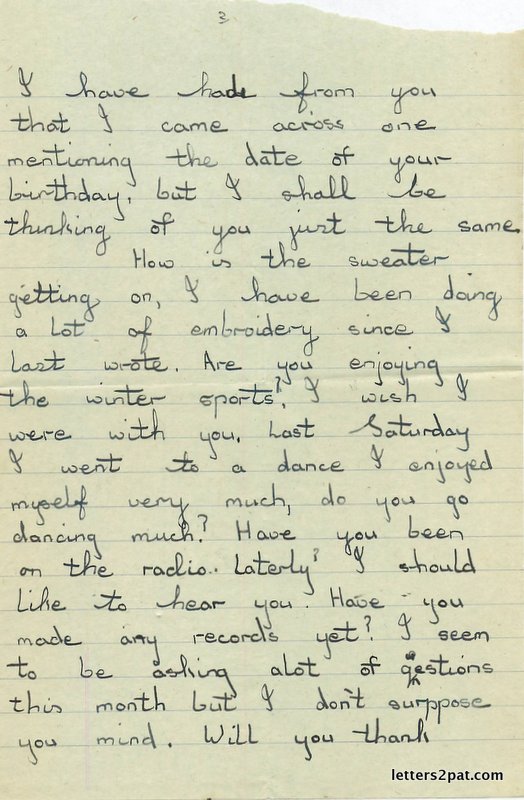 3
I have had from you
that I came across one
mentioning the date of your
birthday, but I shall be
thinking of you just the same.
How is the sweater
getting on, I have been doing
a lot of embroidery since I
last wrote. Are you enjoying
the winter sports? I wish I
were with you. Last Saturday
I went to a dance I enjoyed
myself very much, do you go
dancing much? Have you been
on the radio.. Laterly? I should
like to hear you. Have you
made any records yet? I seem
to be asking alot of questions
this month but I don't surppose
you mind. Will you thank
letters2pat.com